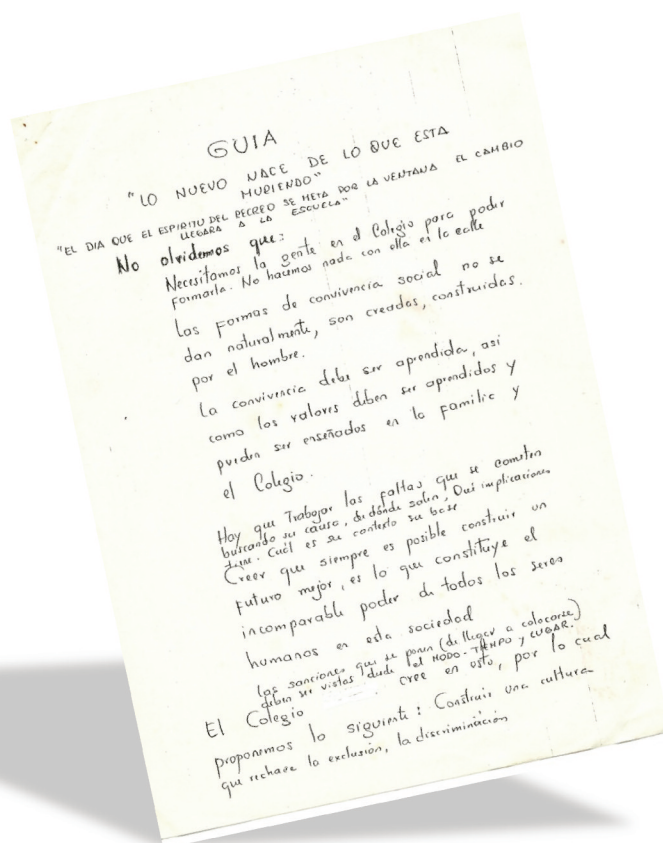 GUIA
"LO NUEVO NACE DE LO QUE ESTA
MURIENDO"
"EL DIA QUE EL ESPIRITU DEL RECREO SE META POR LA VENTANA EL CAMBIO
LLEGARA A LA ESCUELA"
No olvidemos que:
Necesitamos la gente en el Colegio para poder
formarla. No hacemos nada con ella en la calle
Las Formas de convivencia social no se
dan naturalmente, son creadas, construidas.
por el hombre.
La convivencia debe ser aprendida, asi
como los valores deben ser aprendidos y
pueden ser enseñados en la familia y
el Colegio.
Hay que Trabajar las faltas que se cometen
buscando su causa, de dónde salen, Qué implicaciones
tiene. Cuál es su contexto su base
Creer que siempre es posible construir un
Futuro mejor, es lo que constituye el
incomparable poder de todos los seres
humanos en esta sociedad
Las sanciones que se ponen (de llegar a colocarse)
deben ser vistas desde el MODO-TIEMPO y LUGAR.
El Colegio cree en esto, por lo cual
proponemos lo siguiente: Construir una cultura
que rechace la exclusión, la discriminación